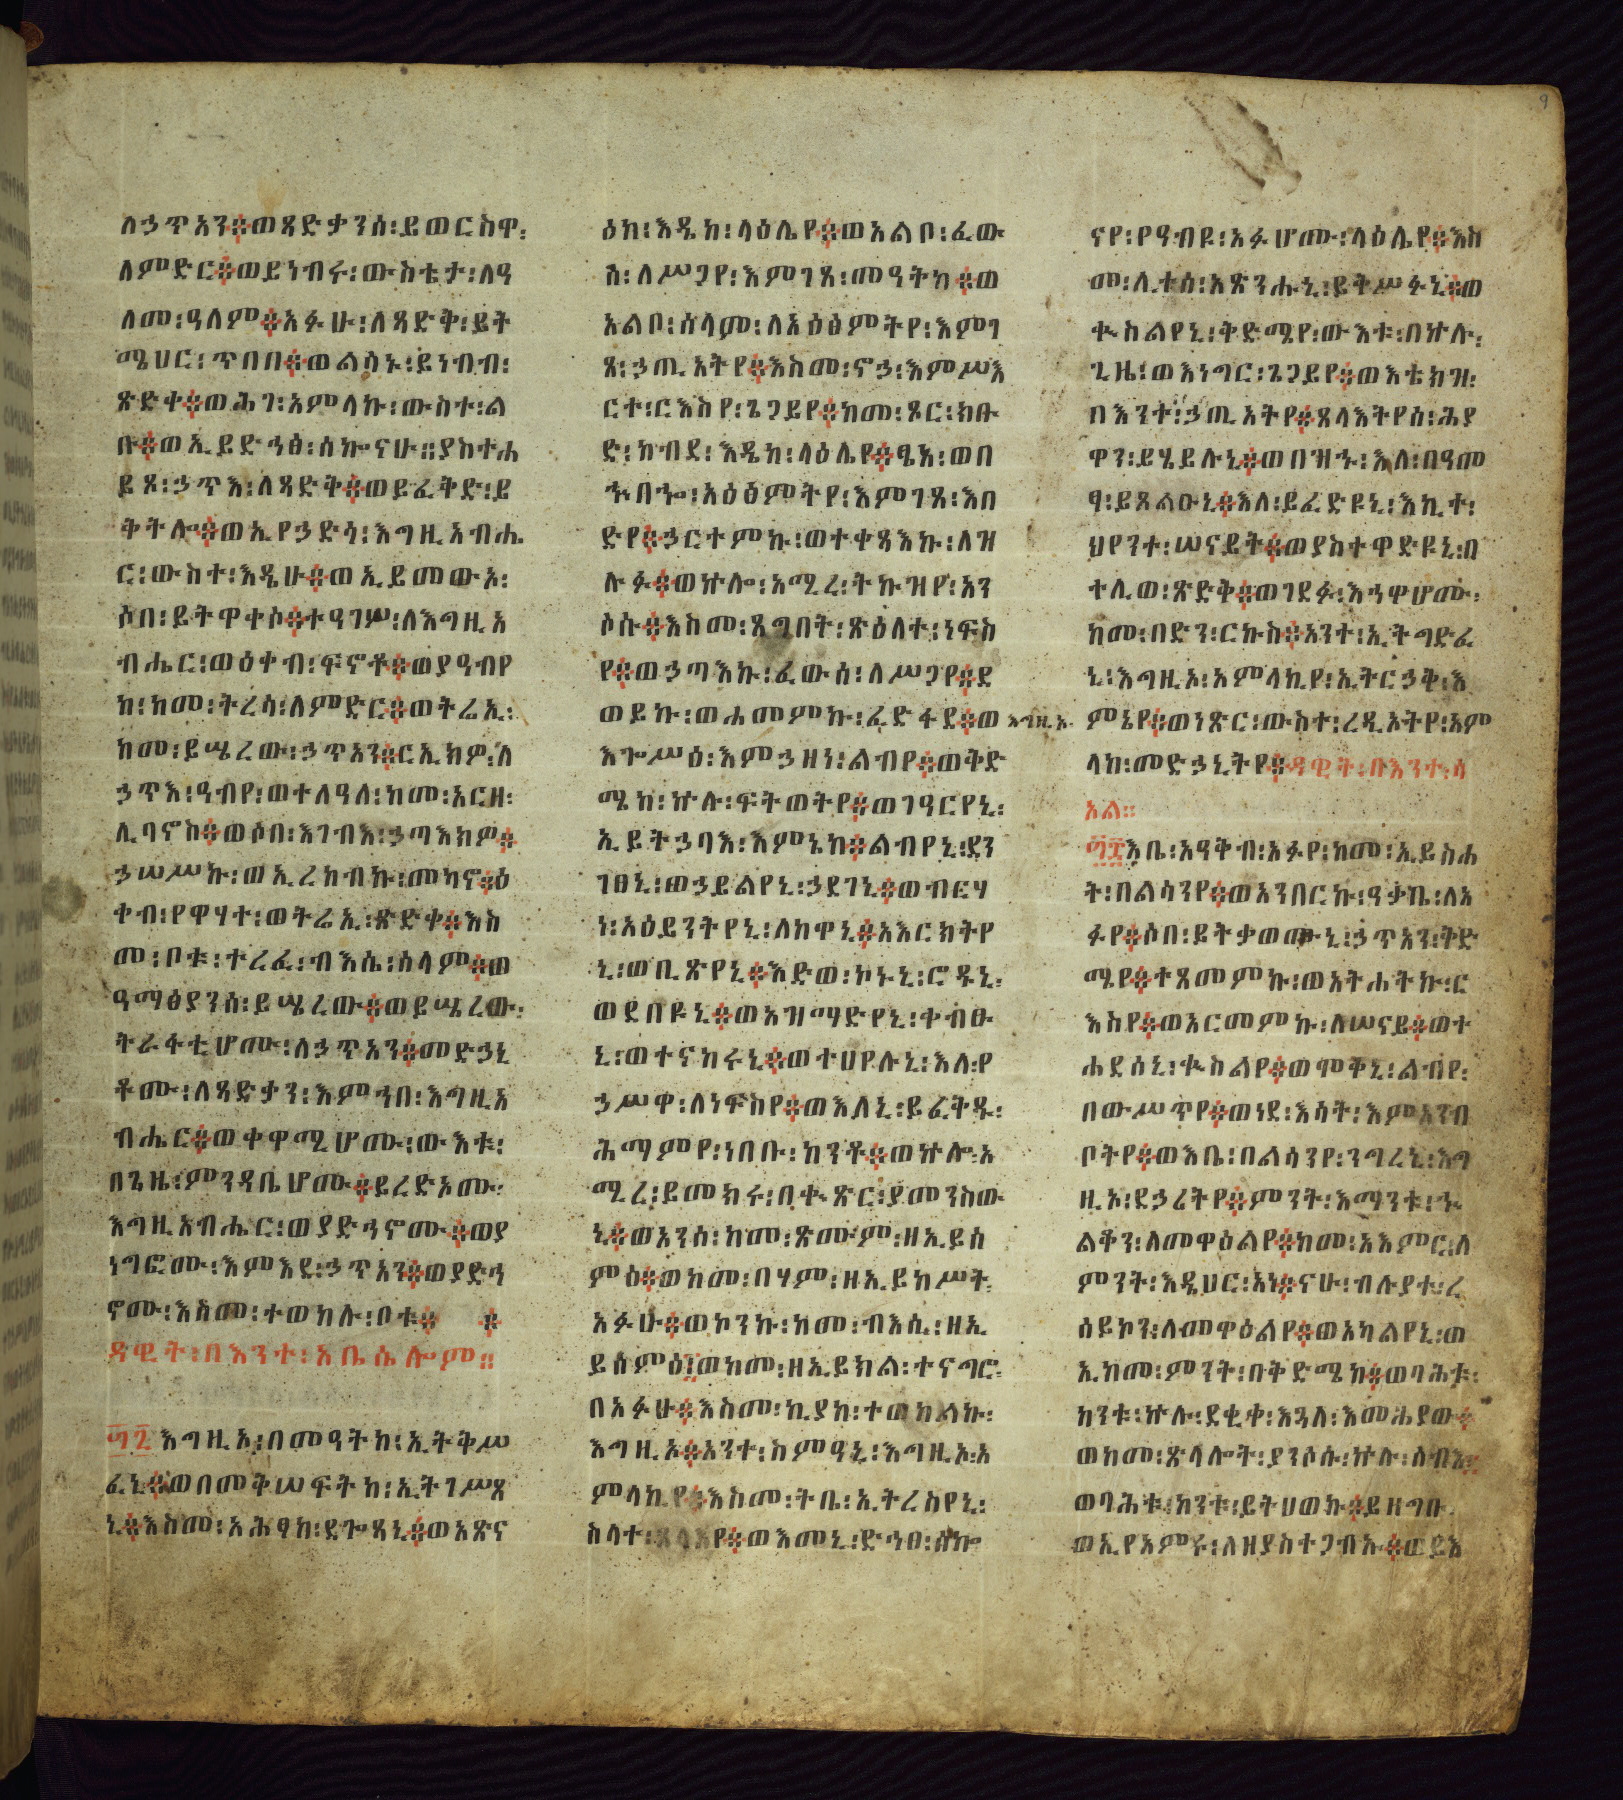 ለኃጥአን፨ወጻድቃንሰ፡ይወርስዋ፡
ለምድር፨ወይነብሩ፡ውስቴታ፡ለዓ
ለመ፡ዓለም፨አፉሁ፡ለጻድቅ፡ይት
ሜሀር፡ጥበበ፨ወልሳኑ፡ይነብብ፡
ጽድቀ፨ወሕገ፡አምላኩ፡ውስተ፡ል
ቡ፨ወኢይድኅፅ፡ሰኰናሁ፡፡ያስተሐ
ይጾ፡ኃጥእ፡ለጻድቅ፨ወይፈቅድ፡ይ
ቅትሎ፨ወኢየኃድሳ፡እግዚአብሔ
ር፡ውስተ፡እዴሁ፨ወኢይመውኦ፡
ሶበ፡ይትዋቀሶ፨ተዓገሦ፡ለእግዚአ
ብሔር፡ወዕቀብ፡ፍኖቶ፨ወያዓብየ
ከ፡ከመ፡ትረሳ፡ለምድር፨ወትሬኢ፡
ከመ፡ይሤረው፡ኃጥአን፨ርኢክዎ፡ለ
ኃጥእ፡ዓብየ፡ወተለዓለ፡ከመ፡አርዘ፡
ሊባኖስ፨ወሶበ፡እገብእ፡ኃጣእክዎ፨
ኃሠሥኩ፡ወኢረከብኩ፡መካኖ፨ዕ
ቀብ፡የዋሃተ፡ወትሬኢ፡ጽድቀ፨እስ
መ፡ቦቱ፡ተረፈ፡ብእሴ፡ሰላም፨ወ
ዓማፅያንሰ፡ይሤረው፨ወይሤረው፡
ትራፋቲሆሙ፡ለኃጥአን፨መድኃኒ
ቶሙ፡ለጻድቃን፡እምኀበ፡እግዚአ
ብሔር፨ወቀዋሚሆሙ፡ውእቱ፡
በጊዜ፡ምንዳቤሆሙ፨ይረድኦሙ፡
እግዚአብሔር፡ወያድኅኖሙ፨ወያ
ነግፎሙ፡እምእደ፡ኃጥአን፨ወያድኅ
ኖሙ፡እስመ፡ተወከሉ፡ቦቱ፨ ፨
ዳዊት፡በእንተ፡አቤሴሎም፡፡
፴፯ እግዚኦ፡በመዓትከ፡ኢትቅሥ
ፈኒ፨ወበመቅሠፍትከ፡ኢትገሥጸ
ኒ፨እስመ፡አሕፃከ፡ደጐጻኒ፨ወአጽና
ዕከ፡እዴከ፡ላዕሌየ፨ወአልቦ፡ፈው
ሰ፡ለሥጋየ፡እምገጸ፡መዓትከ፨ወ
አልቦ፡ሰላም፡ለአዕፅምትየ፡እምገ
ጸ፡ኃጢአትየ፨እስመ፡ኖኃ፡እምሥእ
ርተ፡ርእስየ፡ጌጋይየ፨ከመ፡ጾር፡ክቡ
ድ፡ከብደ፡እዴከ፡ላዕሌየ፨ፄአ፡ወበ
ኍበኈ፡አዕፅምትየ፡እምገጸ፡እበ
ድየ፨ኃርተምኩ፡ወተቀጻእኩ፡ለዝ
ሉፉ፨ወኵሎ፡አሚረ፡ትኩዝየ፡አን
ሶሱ፨እስመ፡ጸግበት፡ጽዕለተ፡ነፍስ
የ፨ወኃጣእኩ፡ፈውሰ፡ለሥጋየ፨ደ
ወይኩ፡ወሐመምኩ፡ፈድፋደ፨ወ እግዚአ
እጐሥዕ፡እምኃዘነ፡ልብየ፨ወቅድ
ሜከ፡ኵሉ፡ፍትወትየ፨ወገዓርየኒ፡
ኢይትኃባእ፡እምኔከ፨ልብየኒ፡ደን
ገፀኒ፡ወኃይልየኒ፡ኃደገኒ፨ወብርሃ
ነ፡አዕይንትየኒ፡ለከዋኒ፨አእርክትየ
ኒ፡ወቢጽየኒ፨እድወ፡ኮኑኒ፡ሮዱኒ፡
ወደበዩኒ፨ወአዝማድየኒ፡ቀብፁ
ኒ፡ወተናከሩኒ፨ወተሀየሉኒ፡እለ፡የ
ኃሥዋ፡ለነፍስየ፨ወእለኒ፡ይፈትዱ፡
ሕማምየ፡ነበቡ፡ከንቶ፨ወኵሎ፡አ
ሚረ፡ይመክሩ፡በቊጽር፡ያመንስው
ኒ፨ወአንሰ፡ከመ፡ጽሙም፡ዘኢይሰ
ምዕ፨ወከመ፡በሃም፡ዘኢይከሥት፡
አፉሁ፨ወኮንኩ፡ከመ፡ብእሲ፡ዘኢ
ይሰምዕ፨ወከመ፡ዘኢይክል፡ተናግሮ፡
በአፉሁ፨እስመ፡ኪያከ፡ተወከልኩ፡
እግዚኦ፨አንተ፡ስምዓኒ፡እግዚኦ፡አ
ምላኪየ፨እስመ፡ትቤ፡ኢትረስየኒ፡
ስላተ፡ጸላእየ፨ወእመኒ፡ድኅፀ፡ሰኰ
ናየ፡የዓብዩ፡አፉሆሙ፡ላዕሌየ፨እስ
መ፡ሊተሰ፡አጽንሑኒ፡ይቅሥፉኒ፨ወ
ቊስልየኒ፡ቅድሜየ፡ውእቱ፡በኵሉ፡
ጊዜ፡ወእነግር፡ጌጋይየ፨ወእቴክዝ፡
በእንተ፡ኃጢአትየ፨ጸላእትየሰ፡ሕያ
ዋን፡ይሄይሉኒ፨ወበዝኁ፡እለ፡በዓመ
ፃ፡ይጸልዑኒ፨እለ፡ይፈድዩኒ፡እኪተ፡
ህየንተ፡ሠናይት፨ወያስተዋድዩኒ፡በ
ተሊወ፡ጽድቅ፨ወገደፉ፡እኅዋሆሙ፡
ከመ፡በድን፡ርኩስ፨አንተ፡ኢትግድፈ
ኒ፡እግዚኦ፡አምላኪየ፡ኢትርኃቅ፡እ
ምኔየ፨ወነጽር፡ውስተ፡ረዲኦትየ፡አም
ላከ፡መድኃኒትየ፨ዳዊት፡በእንተ፡ሳ
አል፡፡
፴፰እቤ፡አዓቅብ፡አፉየ፡ከመ፡ኢይስሐ
ት፡በልሳንየ፨ወአንበርኩ፡ዓቃቤ፡ለአ
ፉየ፨ሶበ፡ይትቃወሙኒ፡ኃጥአን፡ቅድ
ሜየ፨ተጸመምኩ፡ወአትሐትኩ፡ር
እስየ፨ወአርመምኩ፡ለሠናይ፨ወተ
ሐደሰኒ፡ቊስልየ፨ወሞቅኒ፡ልብየ፡
በውሥጥየ፨ወነደ፡እሳት፡እምአንብ
ቦትየ፨ወእቤ፡በልሳንየ፡ንግረኒ፡እግ
ዚኦ፡ደኃሪትየ፨ምንት፡እማንቱ፡ኁ
ልቅን፡ለመዋዕልየ፨ከመ፡አእምር፡ለ
ምንት፡እዴሀር፡አነ፨ናሁ፡ብሉያተ፡ረ
ሰይኮን፡ለመዋዕልየ፨ወአካልየኒ፡ወ
ኢከመ፡ምንት፡በቅድሜከ፨ወባሕቱ፡
ከንቱ፡ኵሉ፡ደቂቀ፡እጓለ፡እመሕያው፨
ወከመ፡ጽላሎት፡ያንሶሱ፡ኵሉ፡ሰብእ፨
ወባሕቱ፡ከንቱ፡ይትሀወኩ፨ይዘግቡ፡
ወኢየአምሩ፡ለዘያስተጋብኡ፨ወይእ